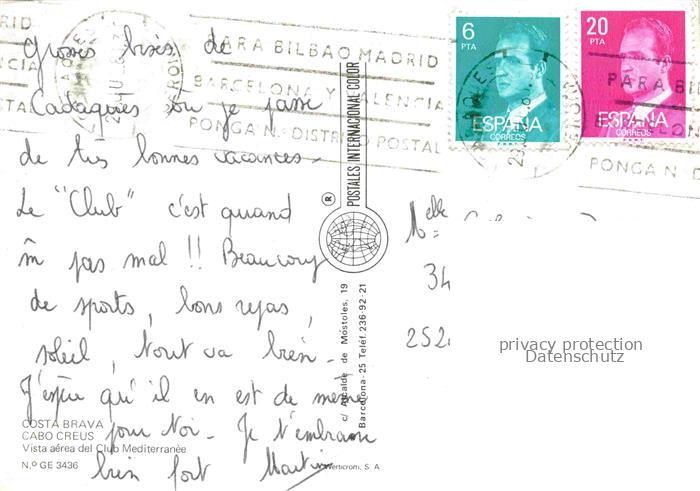 Grosses bises de
Cadaques où je passe
de très bonnes vacances -
Le "Club" c'est quand
m̂ pas mal !! Beaucoup
de sports, bons repas,
soleil, tout va bien -
J'espère qu'il en est de même
pour toi - Je t'embrasse
bien fort Martin
COSTA BRAVA
CABO CREUS
Vista aérea del Club Mediterranée
N.º GE 3436
POSTALES INTERNACIONAL COLOR
®
c/ Alcalde de Móstoles, 19
Barcelona-25 Teléf. 236-92-21
Verticrom, S. A.
PARA BILBAO MADRID
BARCELONA Y VALENCIA
PONGA N.º DISTRITO POSTAL
6
PTA
ESPAÑA
CORREOS
F.N.M.T.
20
PTA
ESPAÑA
CORREOS
F.N.M.T.
PARA BIL
PONGA N.º D
Melle
34
252
privacy protection
Datenschutz